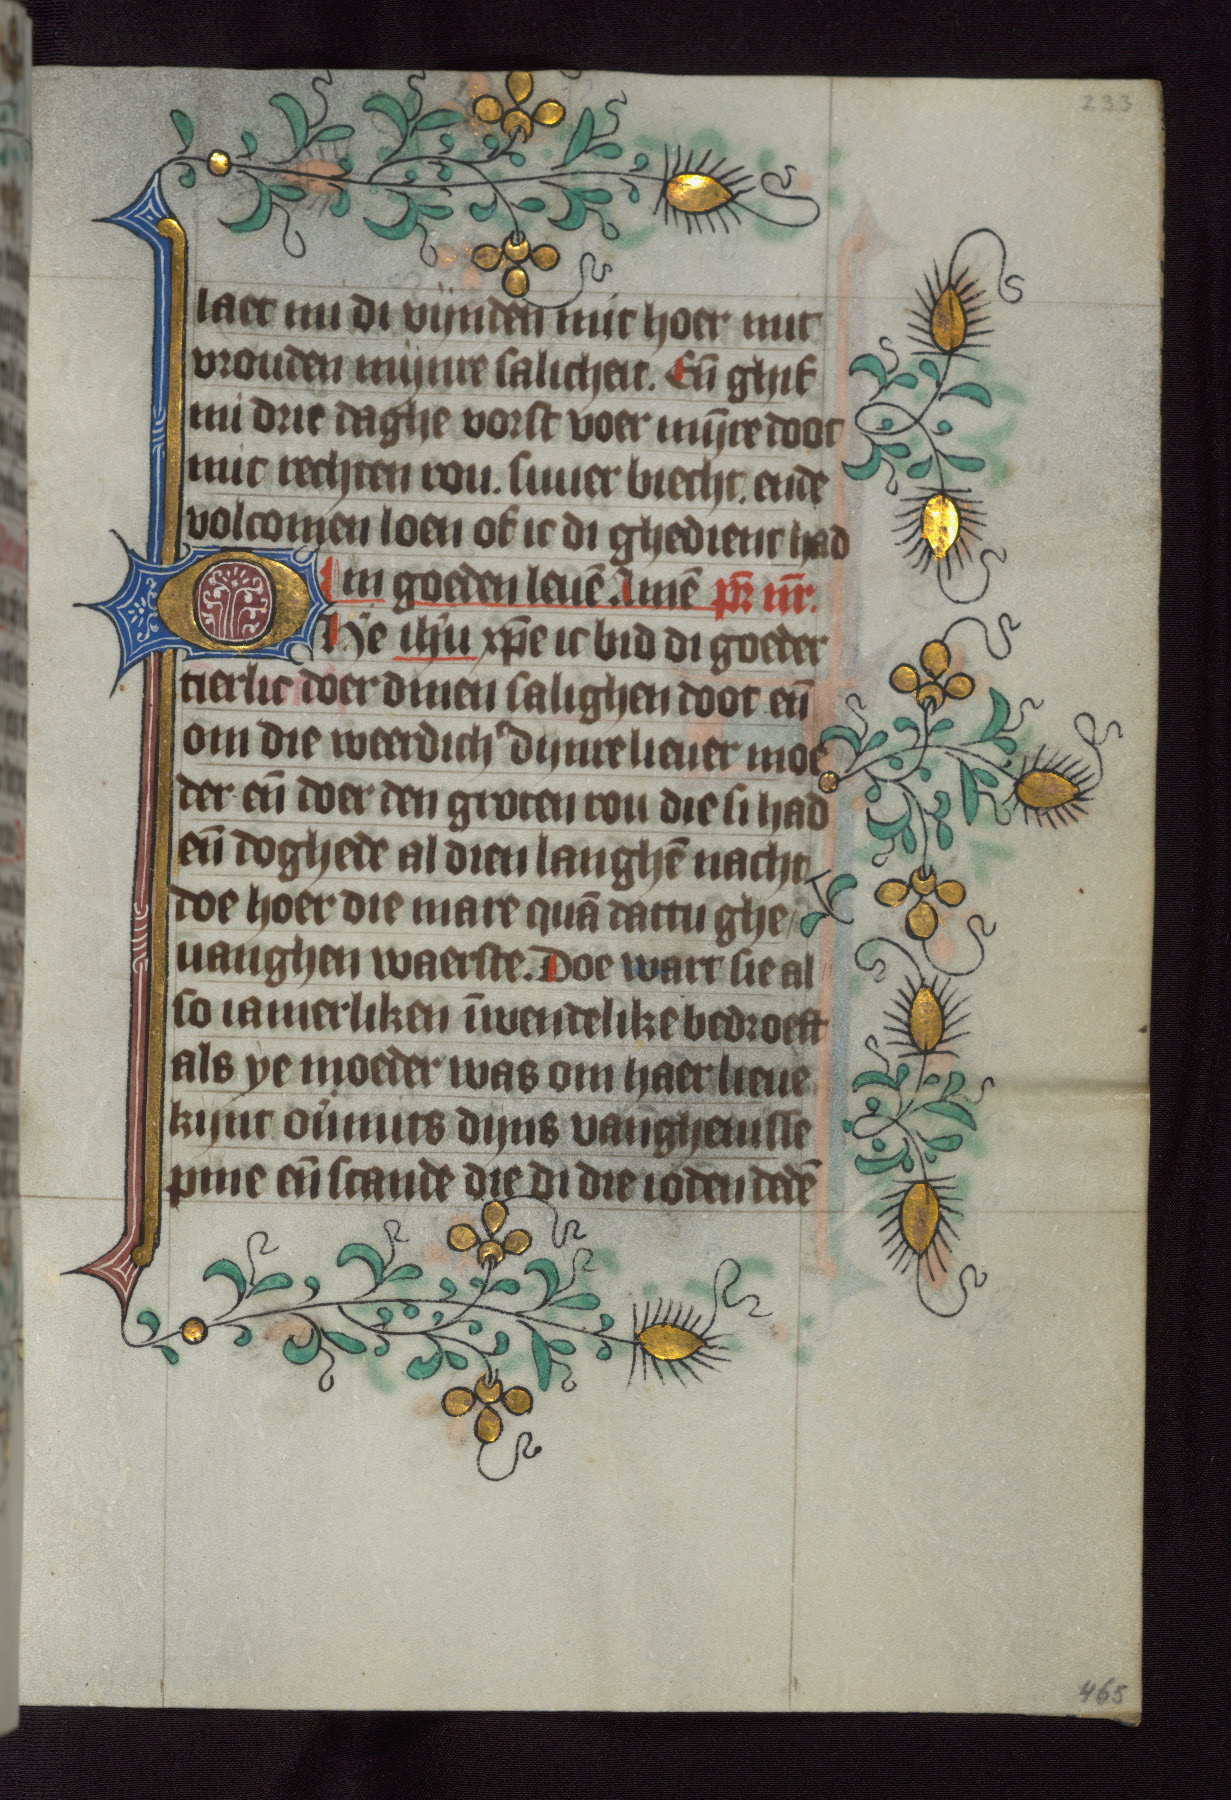 233
laet mi di vijnden mit hoer mit
vrouden mijnre salicheit. Eñ ghif
mi drie daghe vorst voer mȳre doot
mit rechten rou. suuer biecht. ende
volcomen loen of ic di ghedient had
in goeden leuē. Amē pr̄ nr̄.
O He ihū xp̄e ic bid di goeder
tierlic doer dinen salighen doot eñ
om die weerdich' dijnre lieuer moe
der eñ doer den groten rou die si had
eñ doghede al dien langhē nacht
doe hoer die mare quā dattu ghe/
uanghen waerste. Doe wart sie al
so iamerliken īwendelike bedroeft
als ye moeder was om haer lieue
kijnt ouermits dijns vanghenisse
pine eñ scande die di die ioden dedē
465